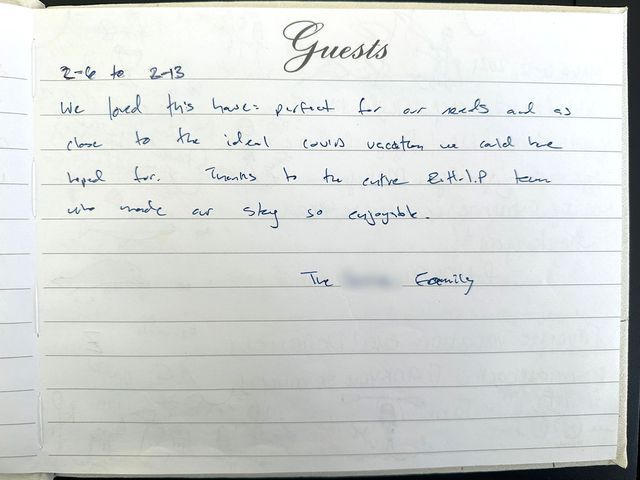 Guests
2-6 to 2-13
We loved this house: perfect for our needs and as
close to the ideal covid vacation we could have
hoped for. Thanks to the entire R.H.I.P team
who made our stay so enjoyable.
The Family